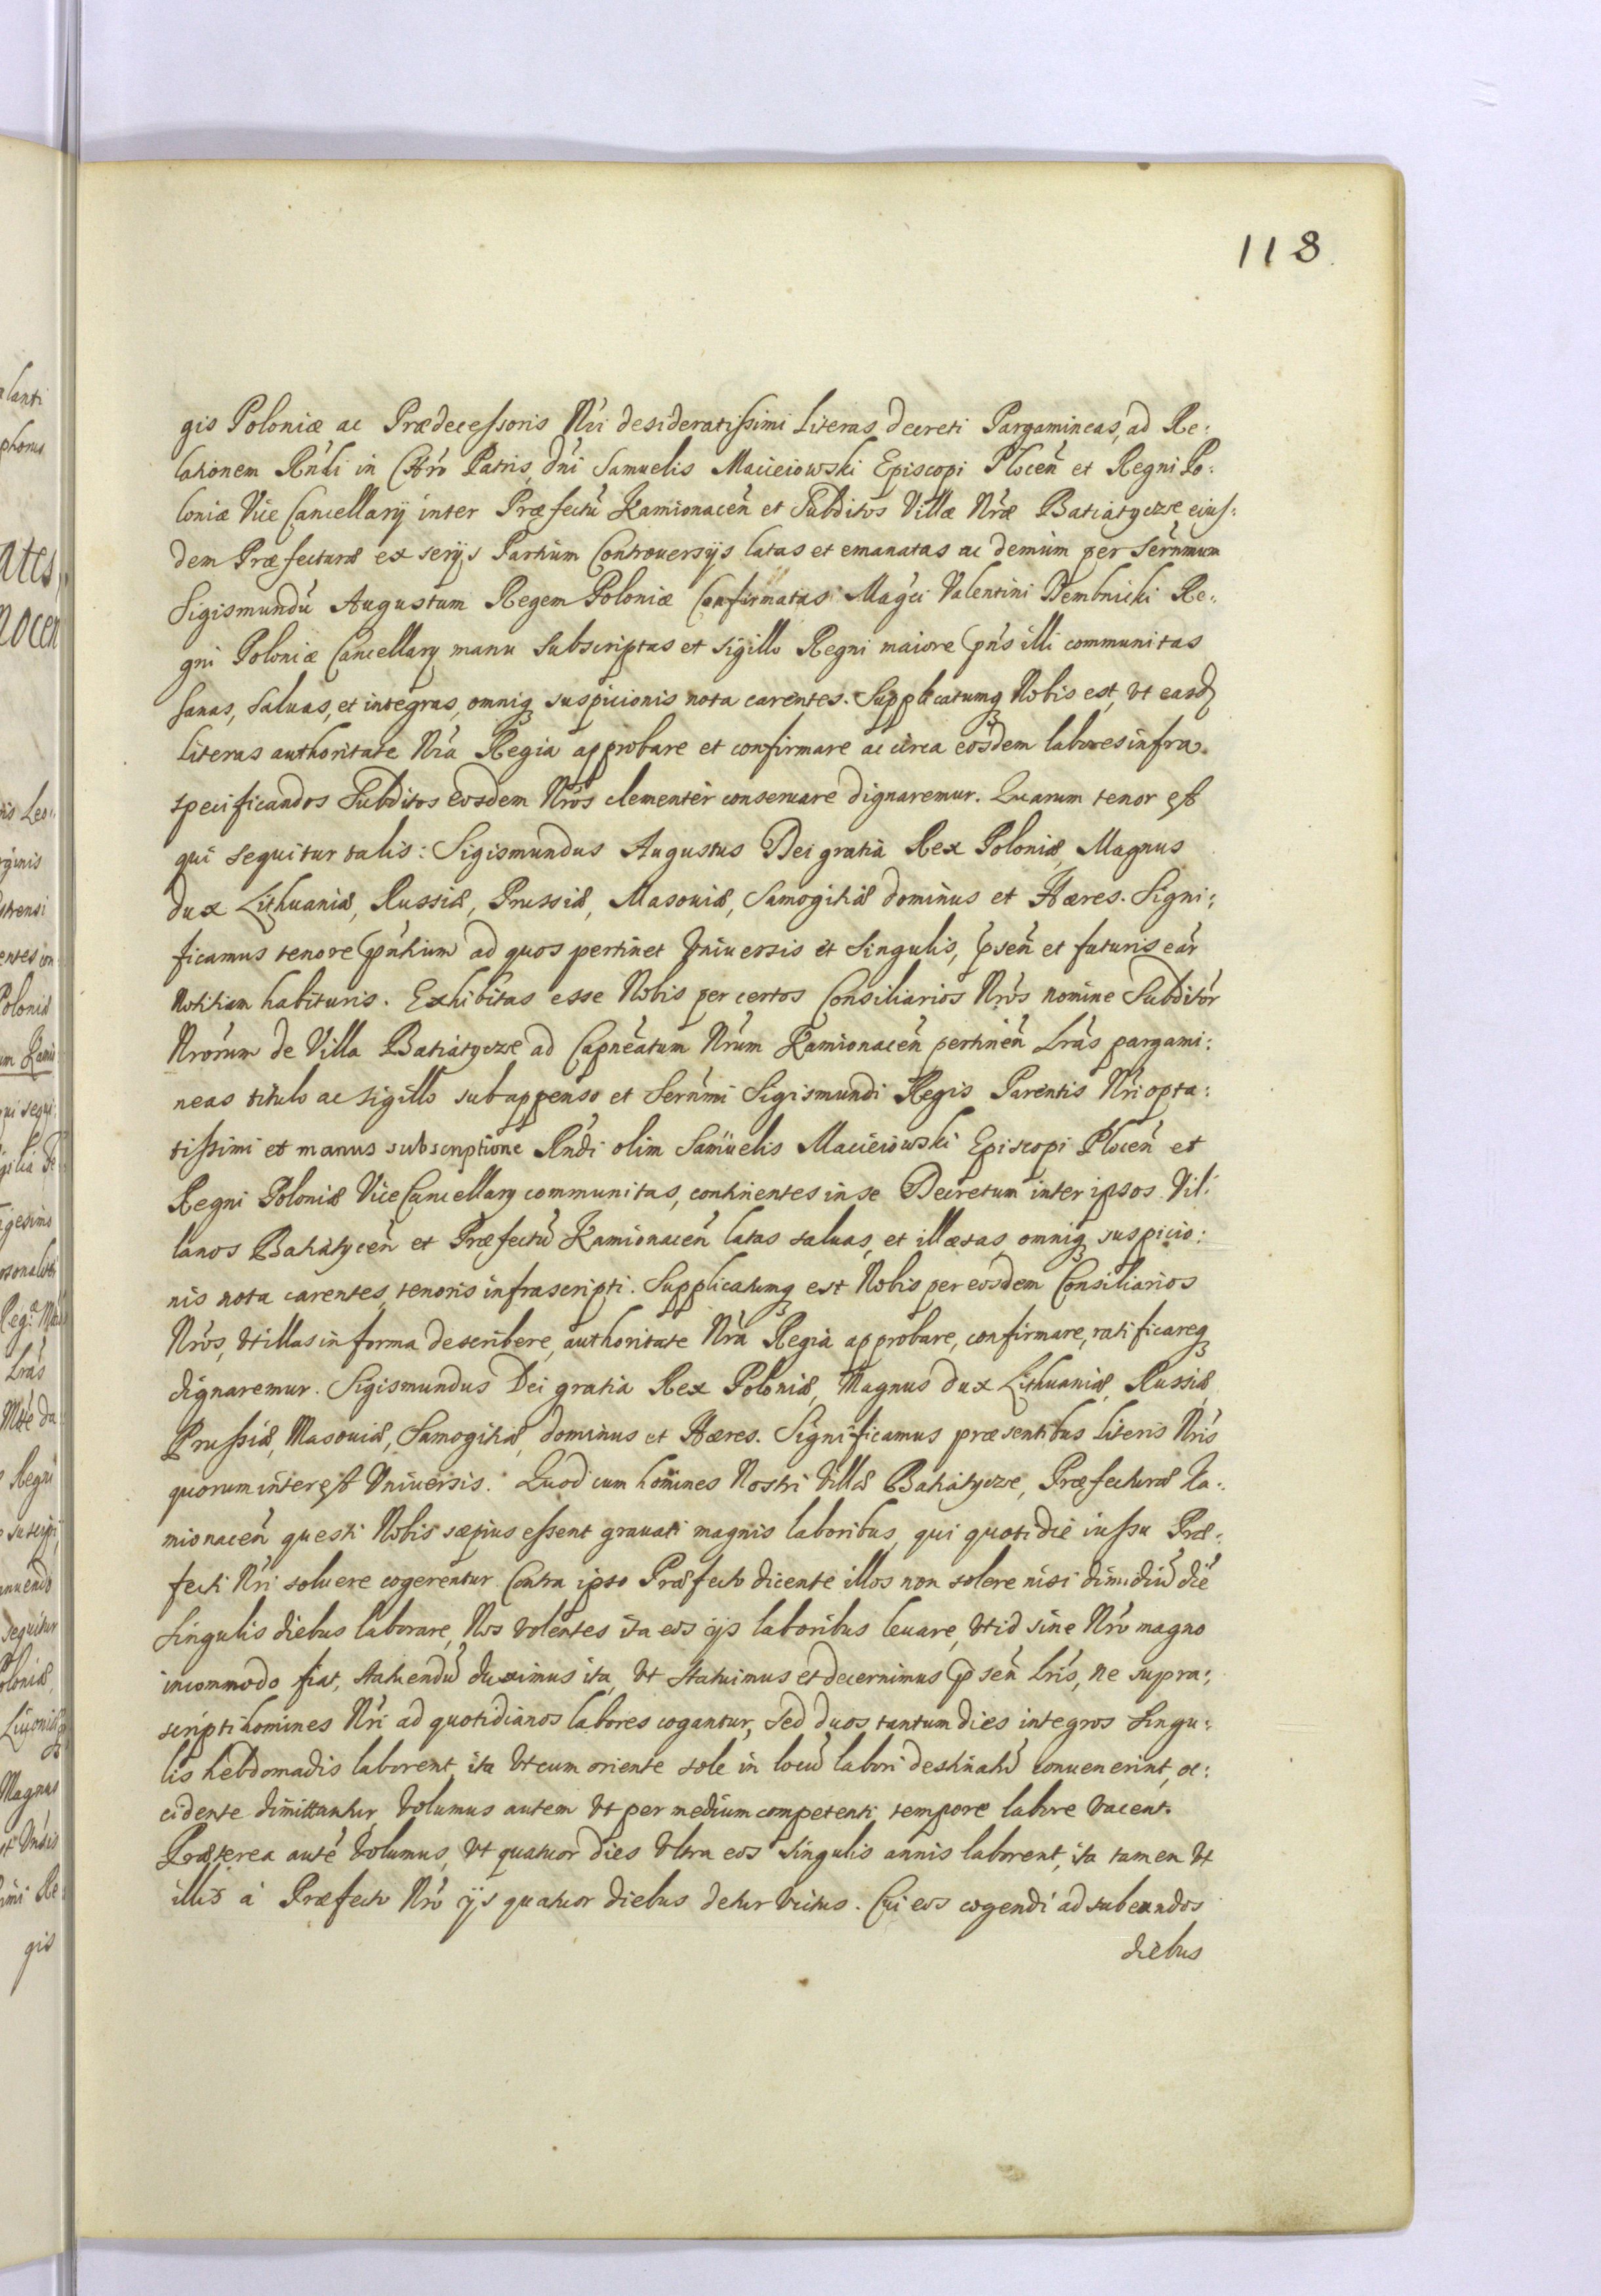 118
gis Poloniæ ac Prædecessoris Nri desideratissimi Literas decreti Pargamineas, ad Re:
lationem Rndi in Chro Patris, dni Samuelis Macieiowski Episcopi Plocen et Regni Po:
loniæ Vice Cancellarij inter Præfectu Kamionacen et Subditos Villæ Nræ Batiatycze eius:
dem Præfecturæ ex serijs Partium Controversijs latas et emanatas ac demum per Sernmum
Sigismundu Augustum Regem Poloniæ Confirmatas Magci Valentini Dembnicki Re:
gni Poloniæ Cancellary manu subscriptas et sigillo Regni maiore pns illi communitas
sanas, saluas, et integras, omniq suspicionis nota carentes. Supplicatumq Nobis est, Vt easd
literas authoritate Nra Regia approbare et confirmare ac circa eosdem labores infra
specificandos Subditos eosdem Nros clementer conseruare dignaremur. Quarum tenor est
qui sequitur talis: Sigismundus Augustus Dei gratia Rex Poloniæ, Magnus
dux Lithuaniæ, Russiæ, Prussiæ, Masouiæ, Samogitiæ dominus et Hæres. Signi:
ficamus tenore pntium ad quos pertinet Vniuersis et Singulis, psen et futuris ear
notitiam habituris. Exhibitas esse Nobis per certos Consiliarios Nros nomine Subditor
Nrorum de Villa Batiatycze ad Capneatum Nrum Kamionacen pertinen Lras pargami:
neas titulo ac sigillo subappenso et Sernmi Sigismundi Regis Parentis Nri opta:
tissimi et manus subscriptione Rndi olim Samuelis Macieiowski Episcopi Plocen et
Regni Poloniæ Vice Cancellary communitas, continentes in se Decretum inter ipsos Vil:
lanos Batiatycen et Præfectu Kamionacen latas saluas, et illæsas, omniq suspicio:
nis nota carentes, tenoris infrascripti. Supplicatumq est Nobis per eosdem Consiliarios
Nros, Vt illas in forma describere, authoritate Nra Regia approbare, confirmare, ratificareq
dignaremur. Sigismundus Dei gratia Rex Poloniæ, Magnus dux Lithuaniæ, Russiæ,
Prussiæ, Masouiæ, Samogitiæ, dominus et Hæres. Significamus præsentibus literis Nris
quorum interest Vniuersis. Quod cum homines Nostri Villæ Batiatycze, Præfecturæ Ka:
mionacen questi Nobis sæpius essent grauati magnis laboribus, qui quotidie iussu Præ:
fecti Nri soluere cogerentur. Contra ipso Præfecto dicente illos non solere nisi dimidiu die
Singulis diebus laborare, Nos Volentes ita eos ijs laboribus leuare, Vt id sine Nro magno
incommodo fiat, statuendu duximus ita, Vt statuimus et decernimus psen Lris, ne supra:
scripti homines Nri ad quotidianos labores cogantur, sed duos tantum dies integros singu:
lis hebdomadis laborent, ita Vt cum oriente sole in locu labori destinatu conuenerint, oc:
cidente dimittantur, Volumus autem Vt per medium competenti tempore labore Vacent.
Præterea aute Volumus, Vt quatuor dies Vltra eos singulis annis laborent, ita tamen Vt
illis à Præfecto Nro ijs quatuor diebus detur Victus. Cui eos cogendi ad subeundos
diebus